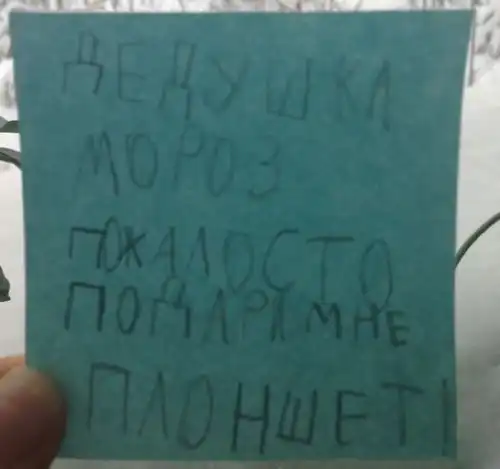 ДЕДУШКА
МОРОЗ
ПОЖАЛОСТО
ПОДАРИ МНЕ
ПЛОНШЕТ!